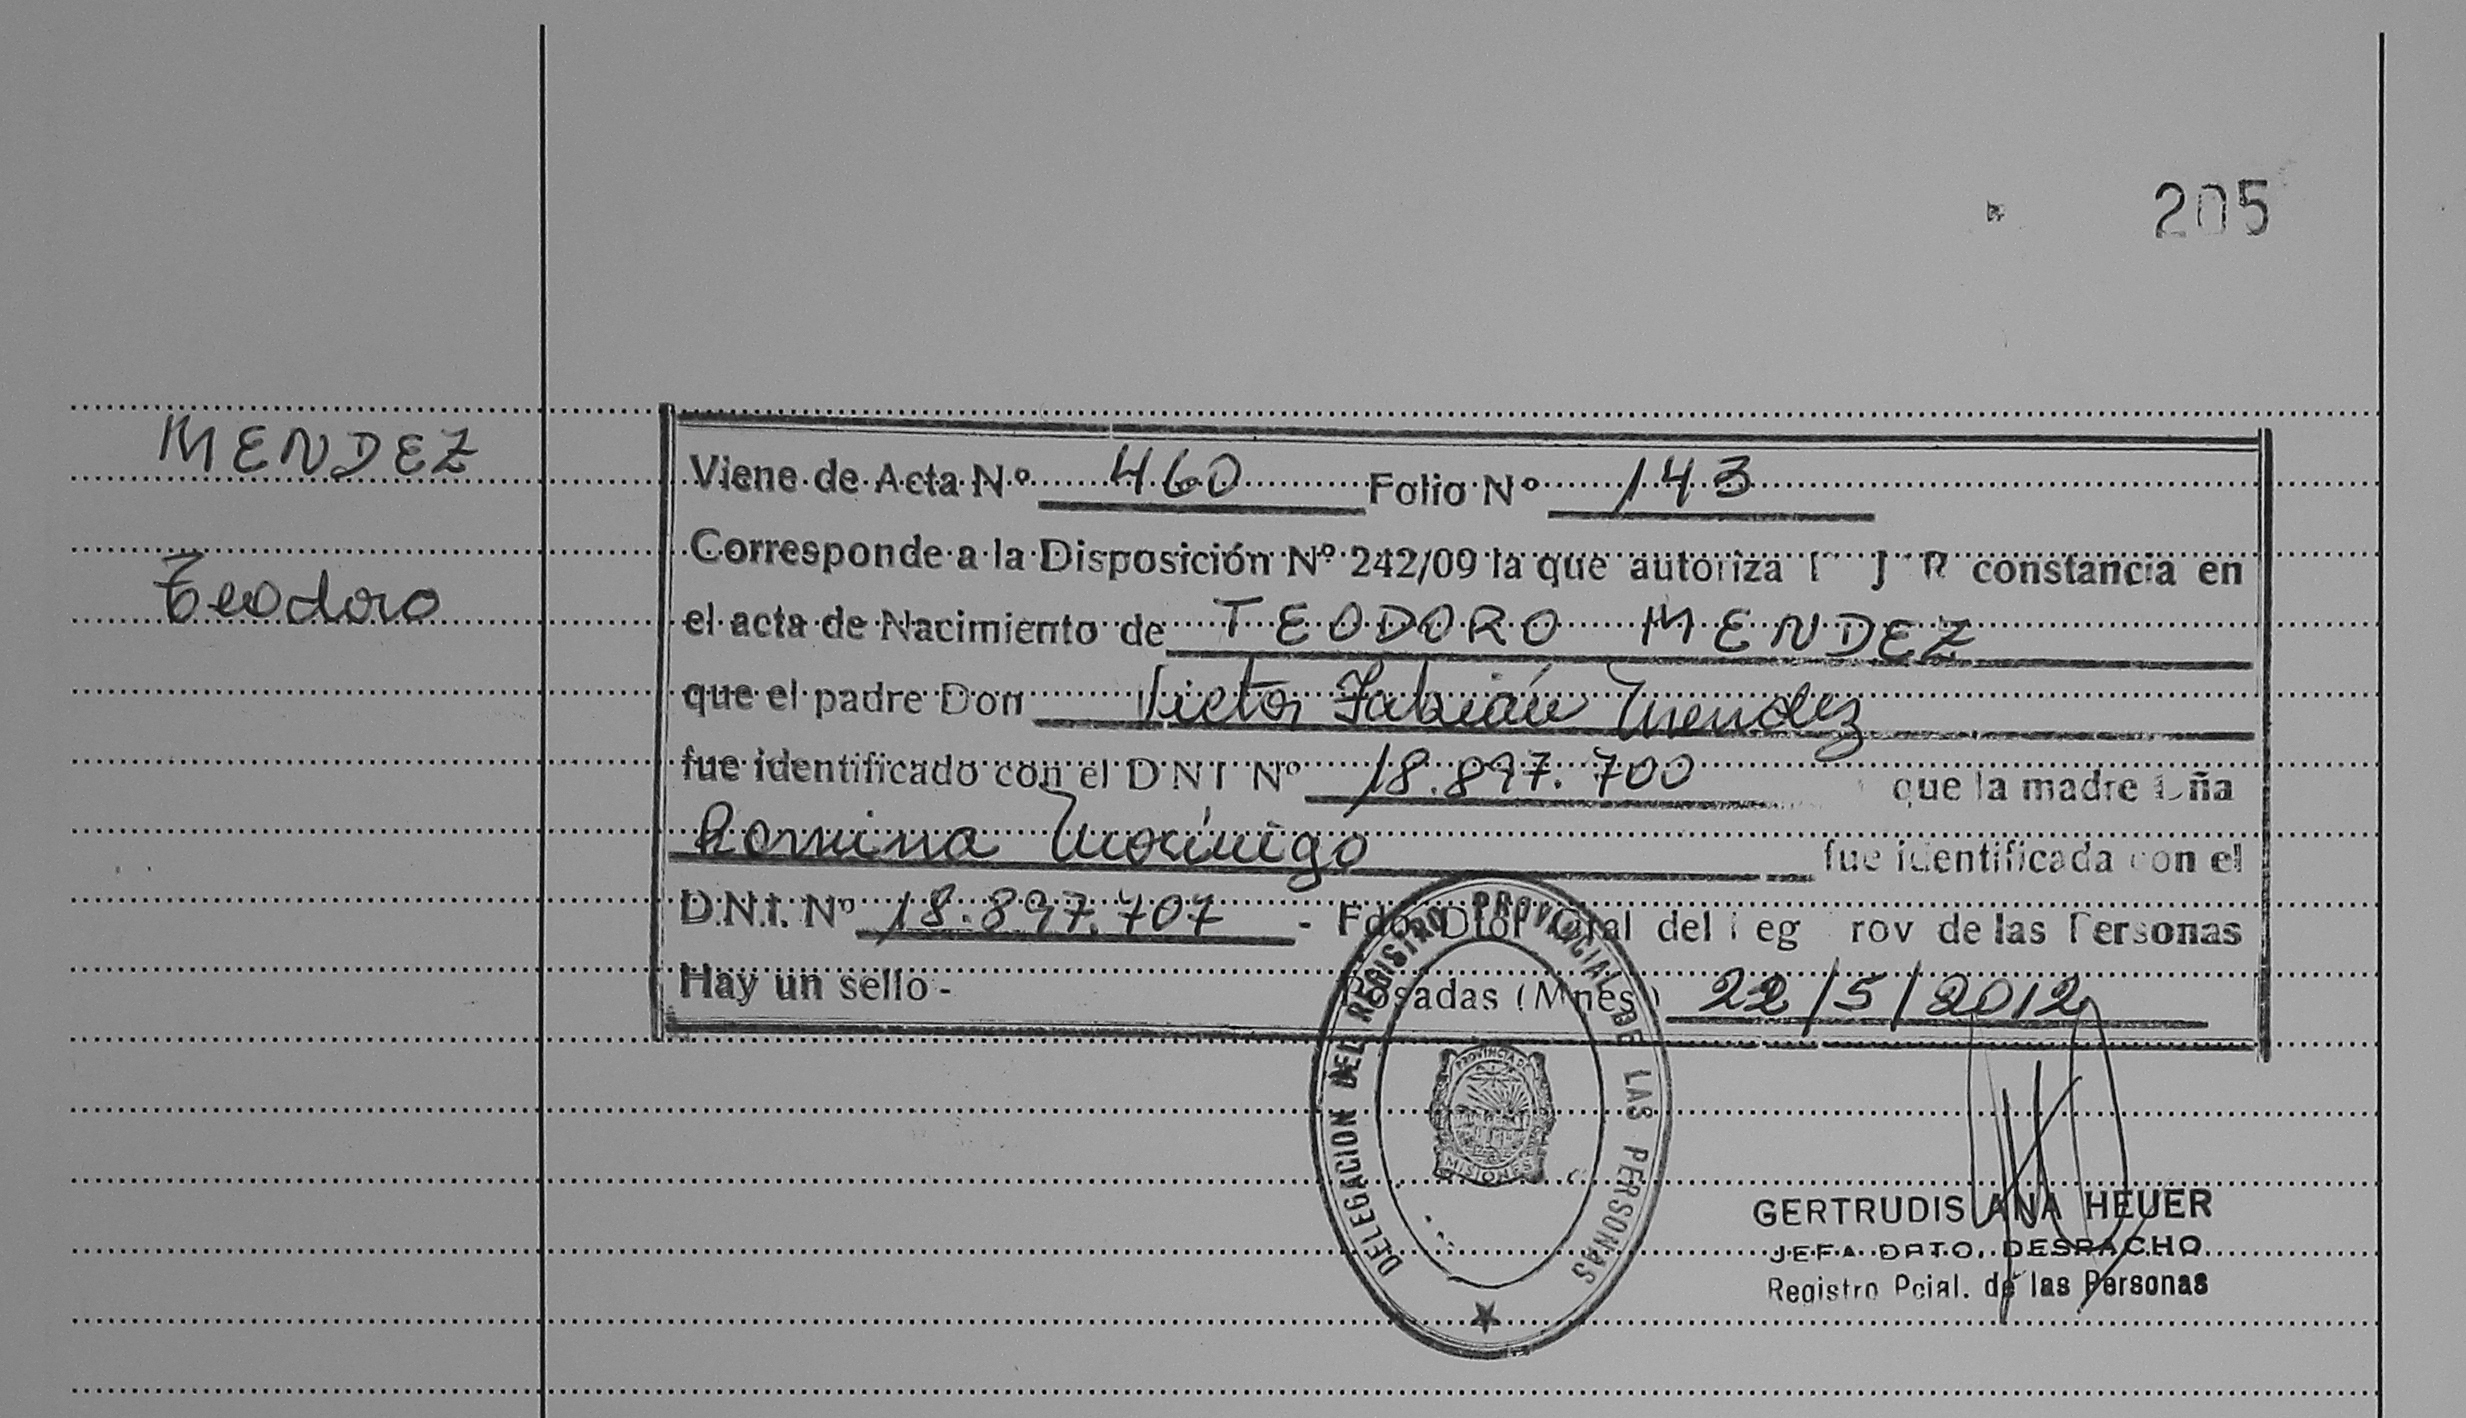 205
MENDEZ
Teodoro
Viene de Acta Nº 460 Folio Nº 143
Corresponde a la Disposición Nº 242/09 la que autoriza constancia en
el acta de Nacimiento de TEODORO MENDEZ
que el padre Don Victor Fabián Mendez
fue identificado con el DNI Nº 18.897.700 que la madre
Romina Morínigo fue identificada con el
D.N.I. Nº 18.897.707 - Fdo. Gral del rov de las Personas
Hay un sello - Posadas (Mnes) 22/5/2012
DELEGACION DEL REGISTRO PROVINCIAL DE LAS PERSONAS
PROVINCIA DE
MISIONES
GERTRUDIS ANA HEUER
JEFA DPTO. DESPACHO
Registro Pcial. de las Personas